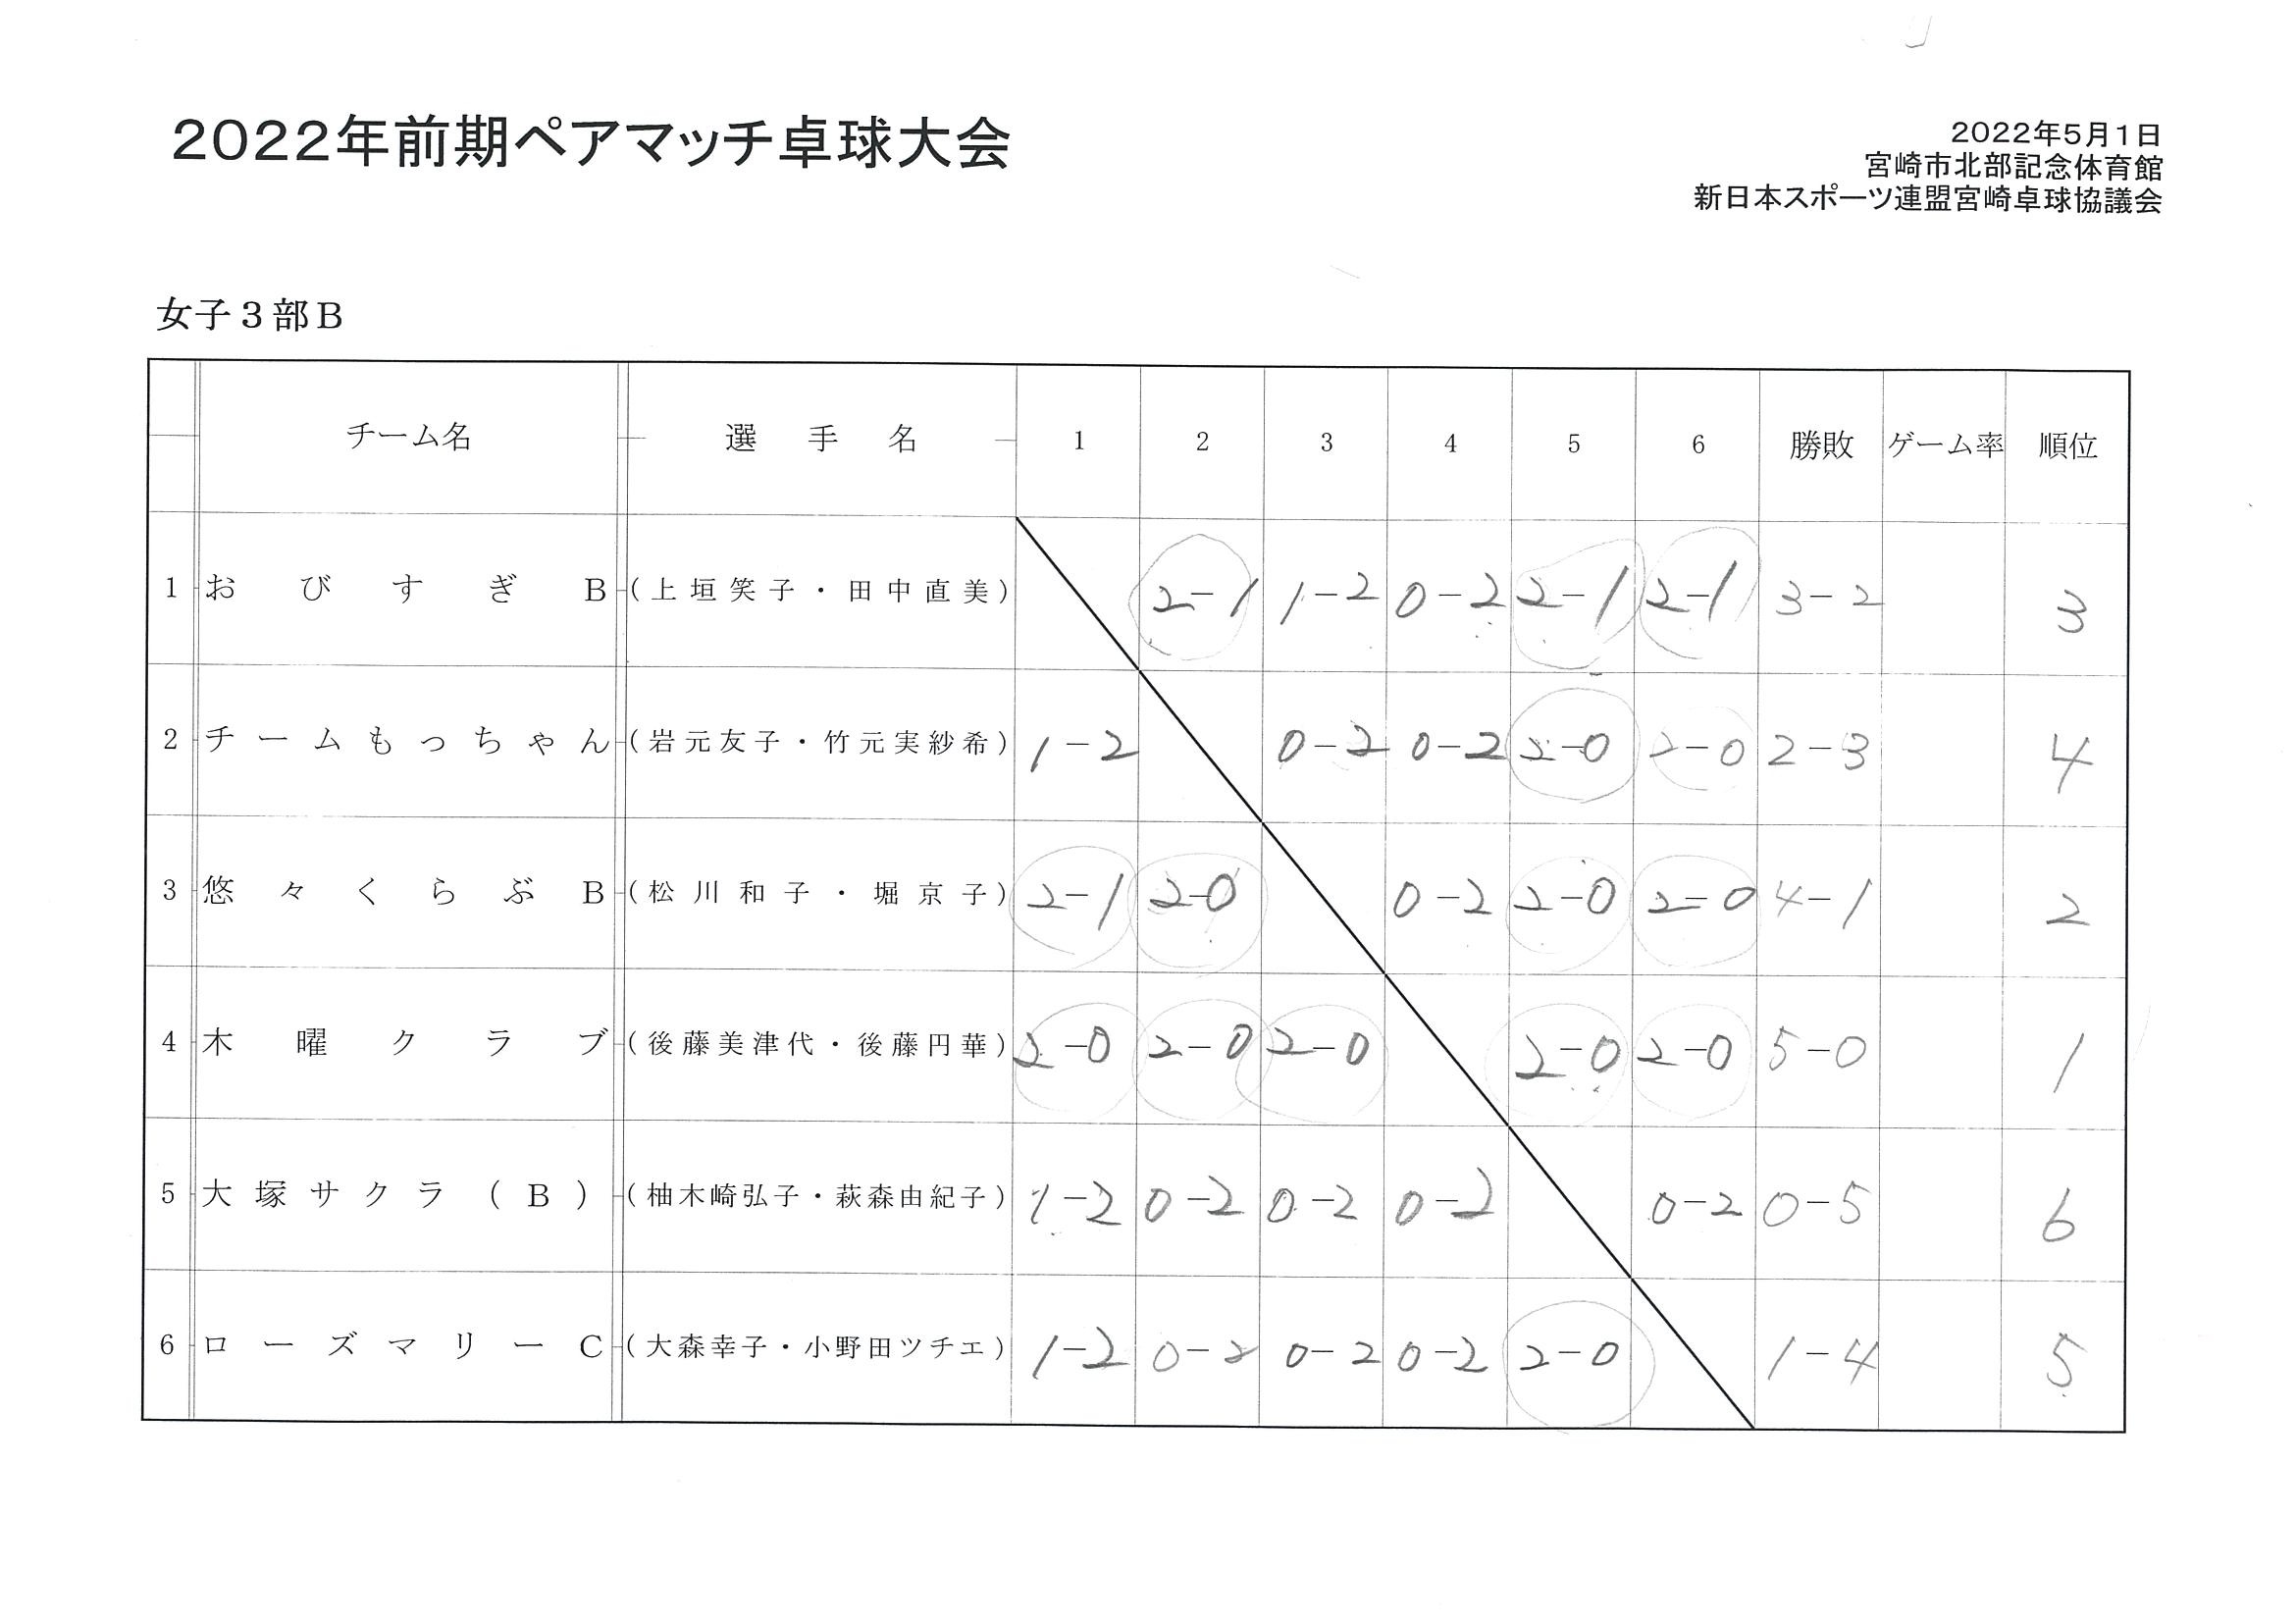 2022年前期ペアマッチ卓球大会
2022年5月1日
宮崎市北部記念体育館
新日本スポーツ連盟宮崎卓球協議会
女子3部B
チーム名 選手名 1 2 3 4 5 6 勝敗 ゲーム率 順位
1 おびすぎB (上垣笑子・田中直美) 2-1 1-2 0-2 2-1 2-1 3-2 3
2 チームもっちゃん (岩元友子・竹元実紗希) 1-2 0-2 0-2 2-0 2-0 2-3 4
3 悠々くらぶB (松川和子・堀京子) 2-1 2-0 0-2 2-0 2-0 4-1 2
4 木曜クラブ (後藤美津代・後藤円華) 2-0 2-0 2-0 2-0 2-0 5-0 1
5 大塚サクラ(B) (柚木崎弘子・萩森由紀子) 1-2 0-2 0-2 0-2 0-2 0-5 6
6 ローズマリーC (大森幸子・小野田ツチエ) 1-2 0-2 0-2 0-2 2-0 1-4 5